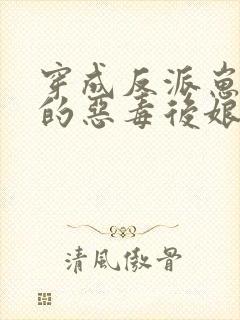 穿成反派崽
的惡毒後娘
清風傲骨